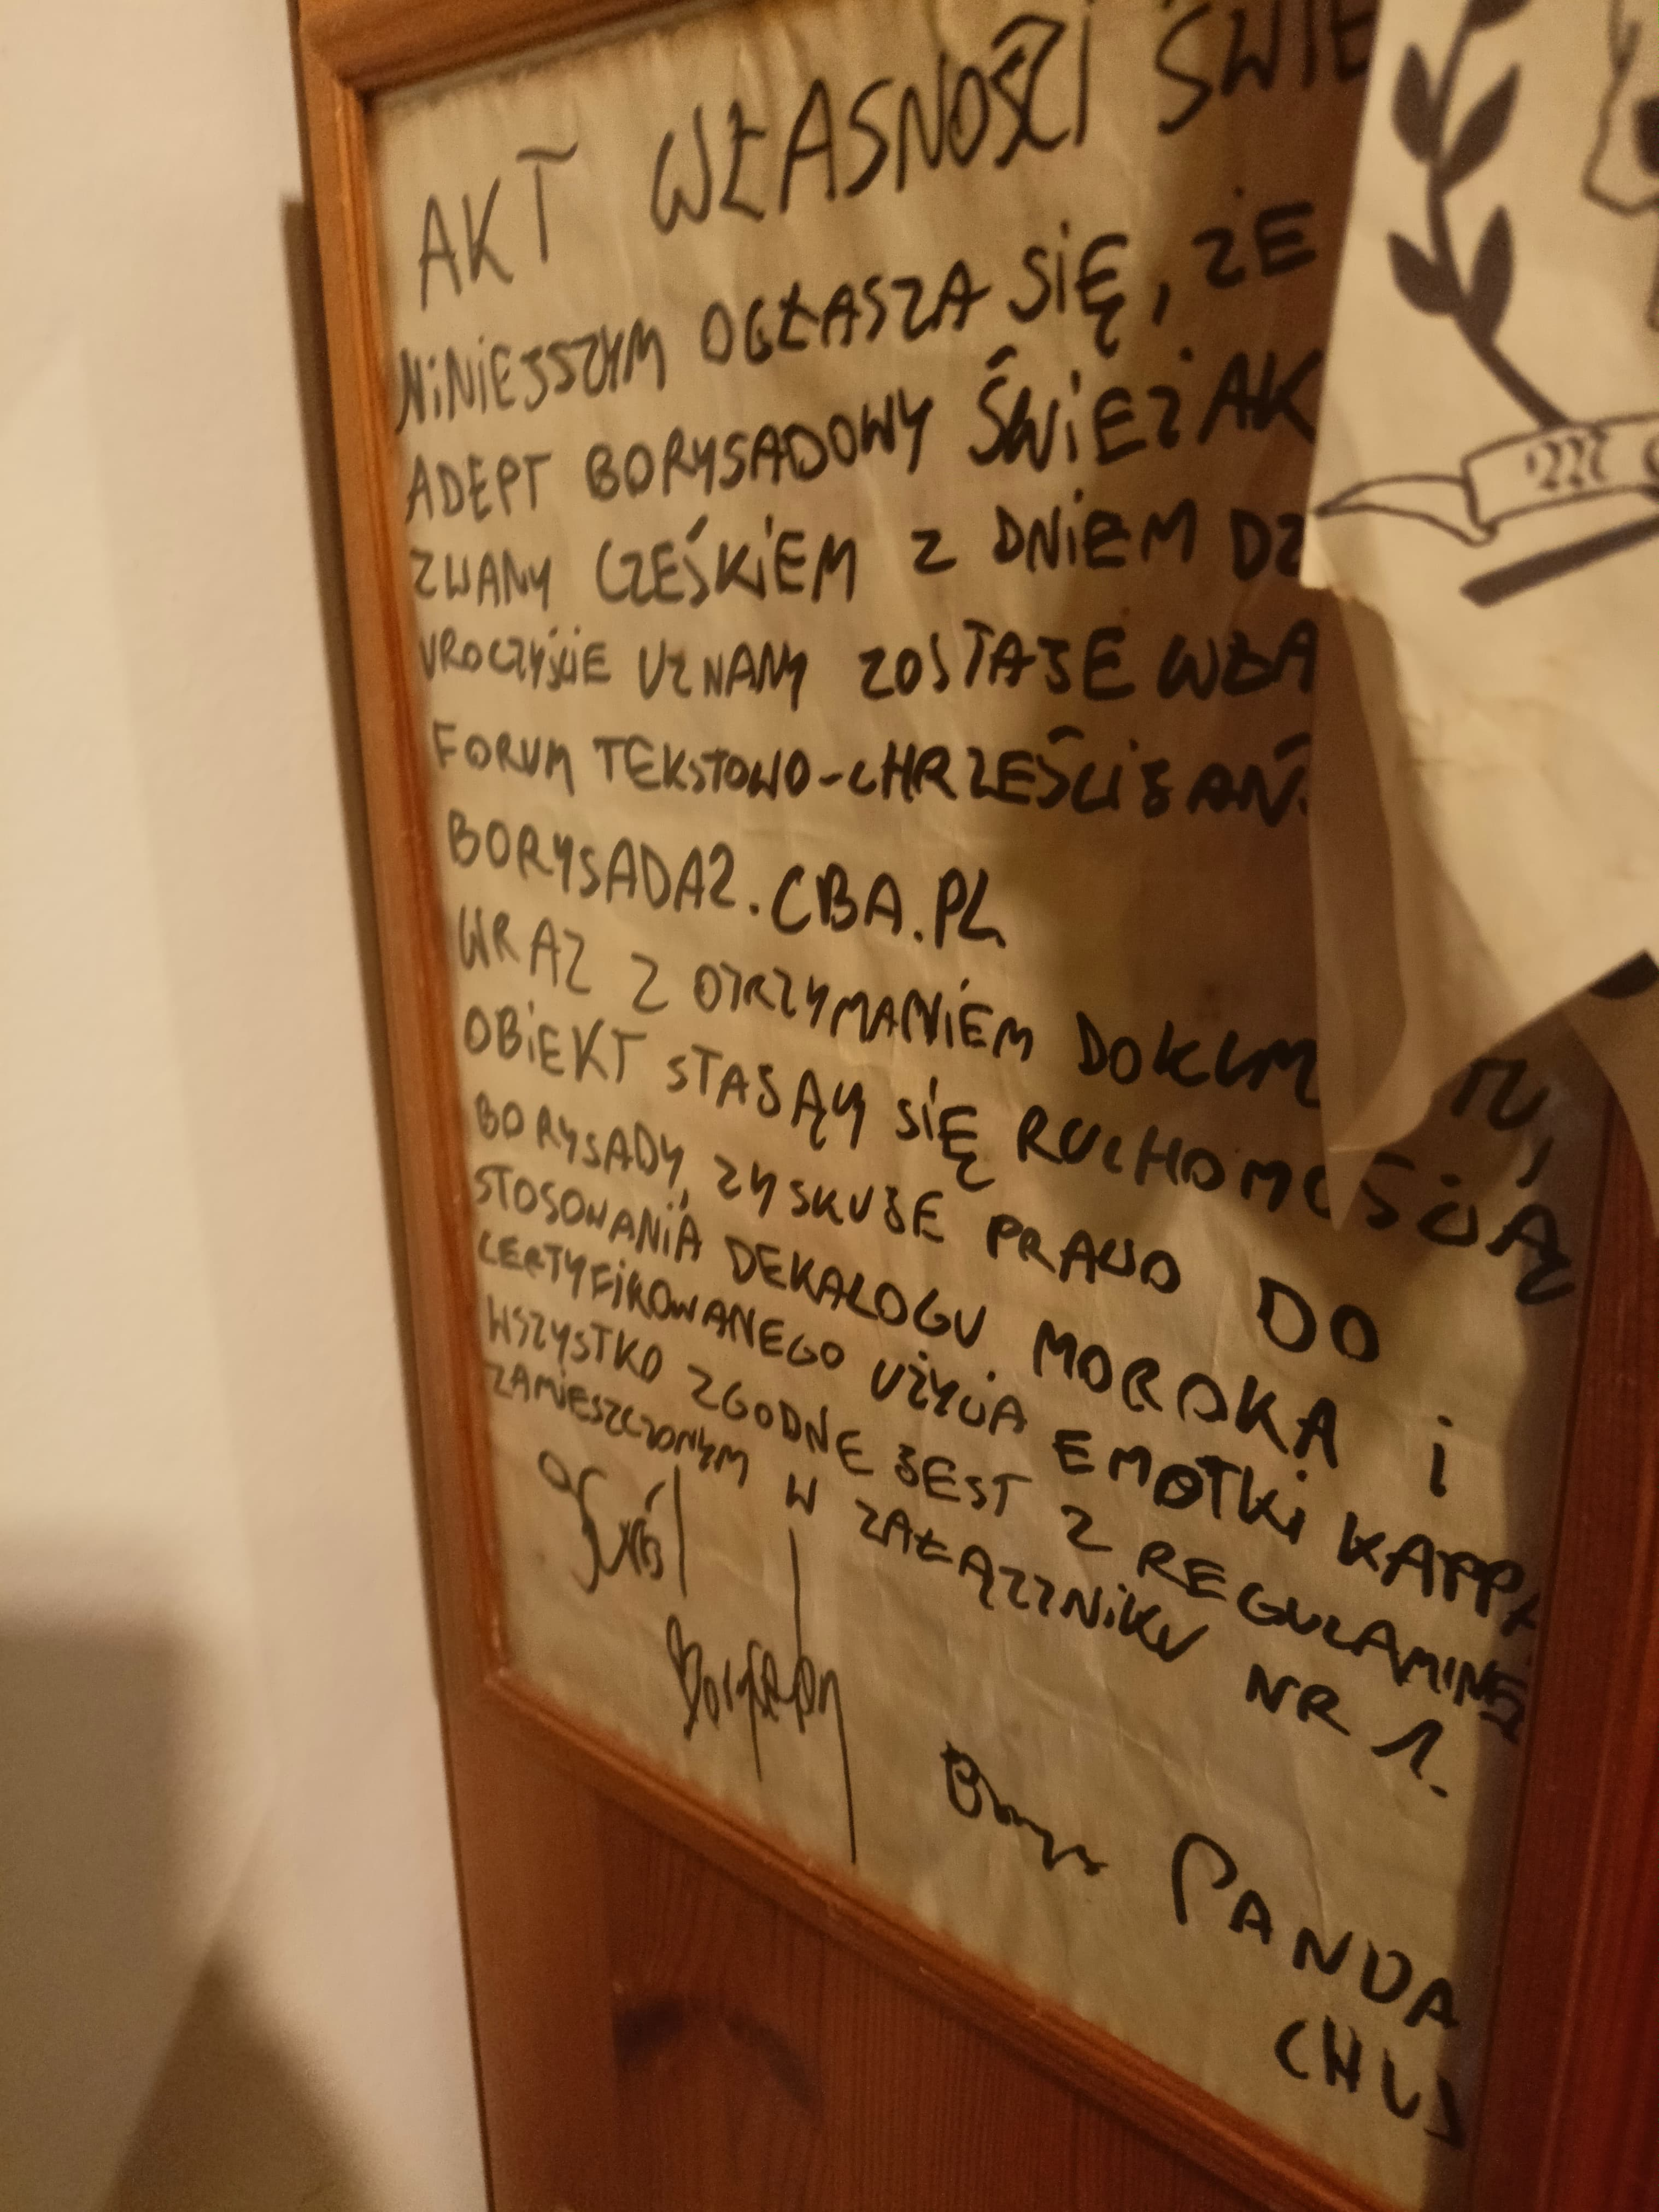 AKT WŁASNOŚCI ŚWIE
NINIEJSZYM OGŁASZA SIĘ, ŻE
ADEPT BORYSADOWY ŚWIEŻAK
ZWANY CZEŚKIEM Z DNIEM DZ
UROCZYŚCIE UZNANY ZOSTAJE WŁA
FORUM TEKSTOWO-CHRZEŚCIJAŃ
BORYSADA2.CBA.PL
WRAZ Z OTRZYMANIEM DOKUM
OBIEKT STAJĄY SIĘ RUCHOMOŚCIĄ
BORYSADY, ZYSKUJE PRAWO DO
STOSOWANIA DEKALOGU MOROKA I
CERTYFIKOWANEGO UŻYCIA EMOTKI KAPPA
WSZYSTKO ZGODNE JEST Z REGULAMINEM
ZAMIESZCZONYM W ZAŁĄCZNIKU NR 1.
PANDA
CHUJ